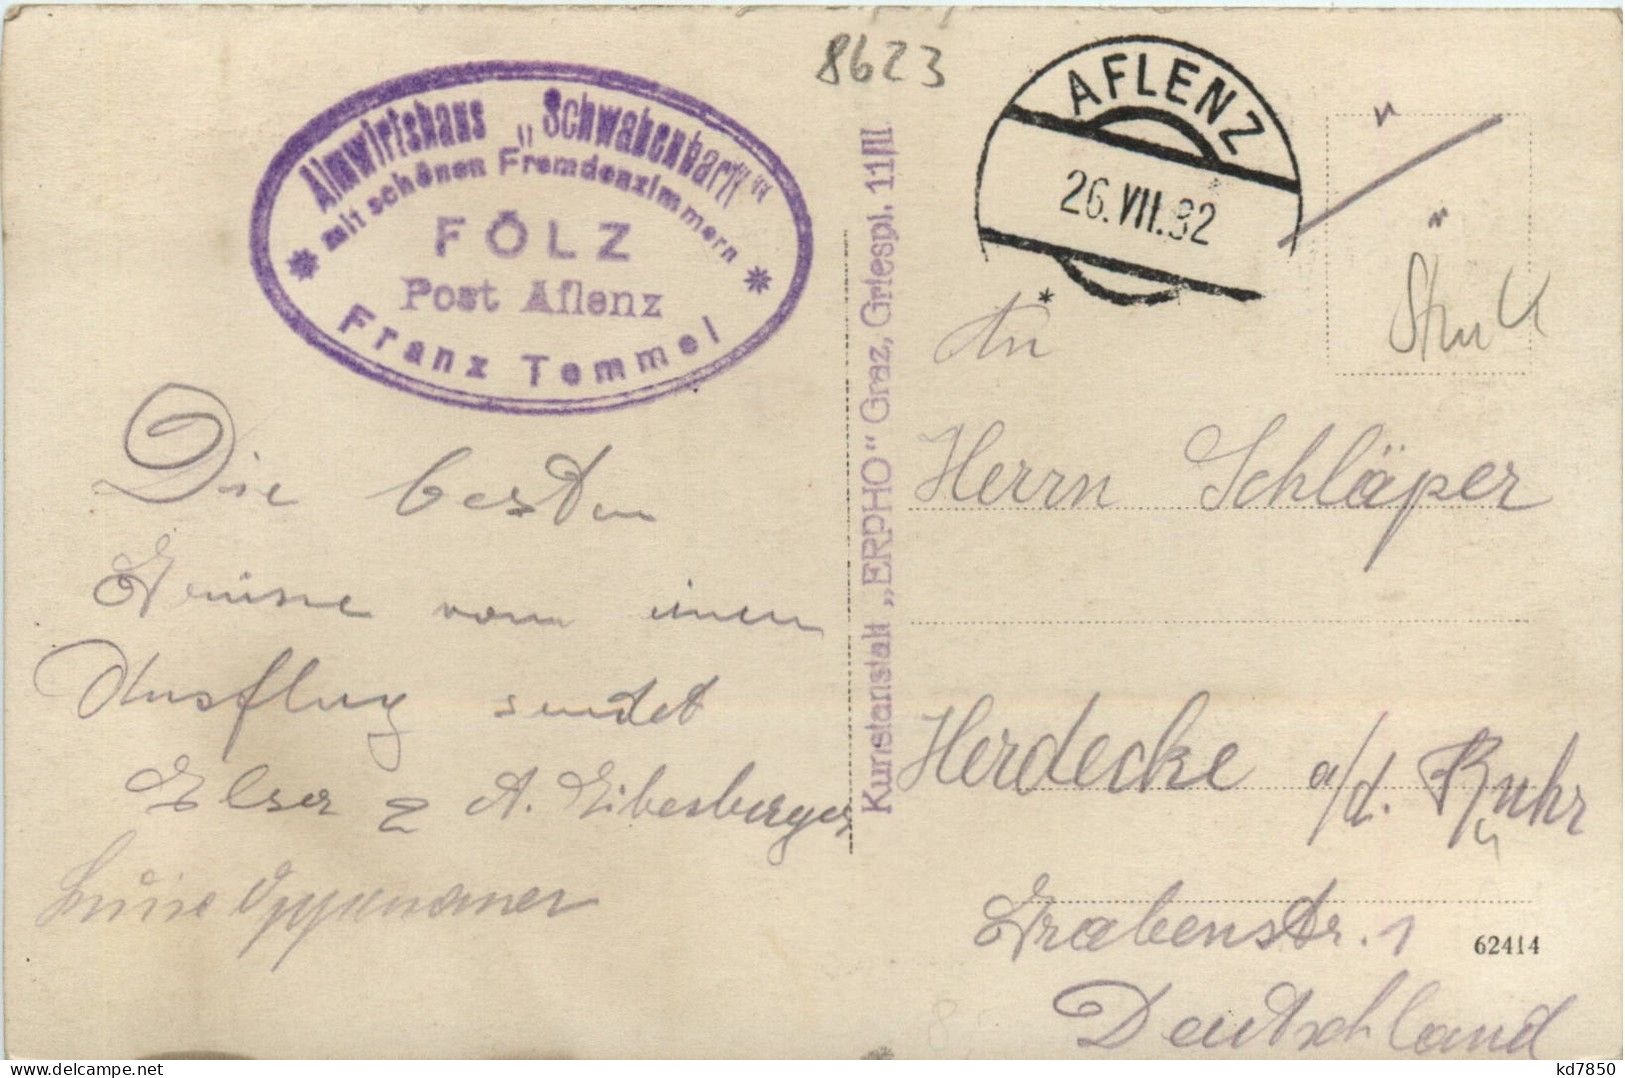 8623
Almwirtshaus „Schwabenbartl“
mit schönen Fremdenzimmern
FÖLZ
Post Aflenz
Franz Temmel
AFLENZ
26.VII.32
Kunstanstalt „ERPHO“ Graz, Griespl. 11/II
An
Herrn Schläper
Herdecke a/d. Ruhr
Grabenstr. 1
Deutschland
62414
Die besten
Grüsse vom einen
Ausflug sendet
Elser & A. Eibesberger
Luise
kd7850